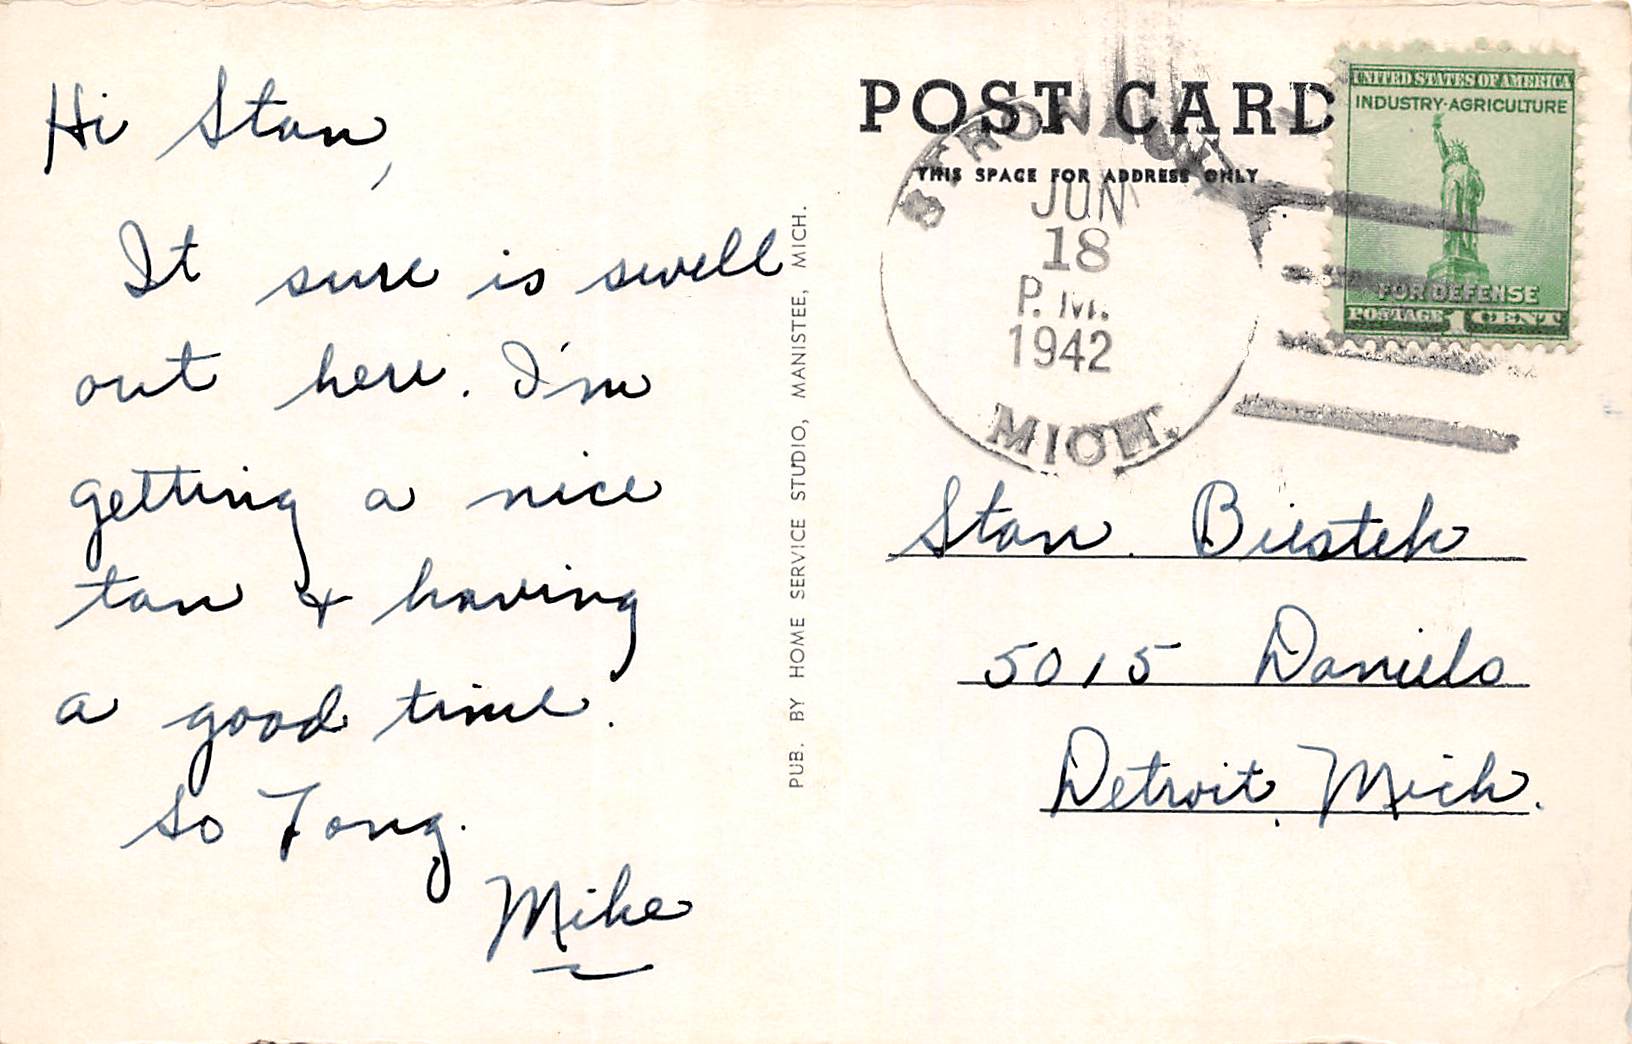 Hi Stan,
It sure is swell
out here. I'm
getting a nice
tan & having
a good time.
So Tong.
Mike
PUB. BY HOME SERVICE STUDIO, MANISTEE, MICH.
POST CARD
THIS SPACE FOR ADDRESS ONLY
STRONACH
JUN
18
P.M.
1942
MICH.
UNITED STATES OF AMERICA
INDUSTRY·AGRICULTURE
FOR DEFENSE
POSTAGE 1 CENT
Stan Biestek
5015 Daniels
Detroit, Mich.